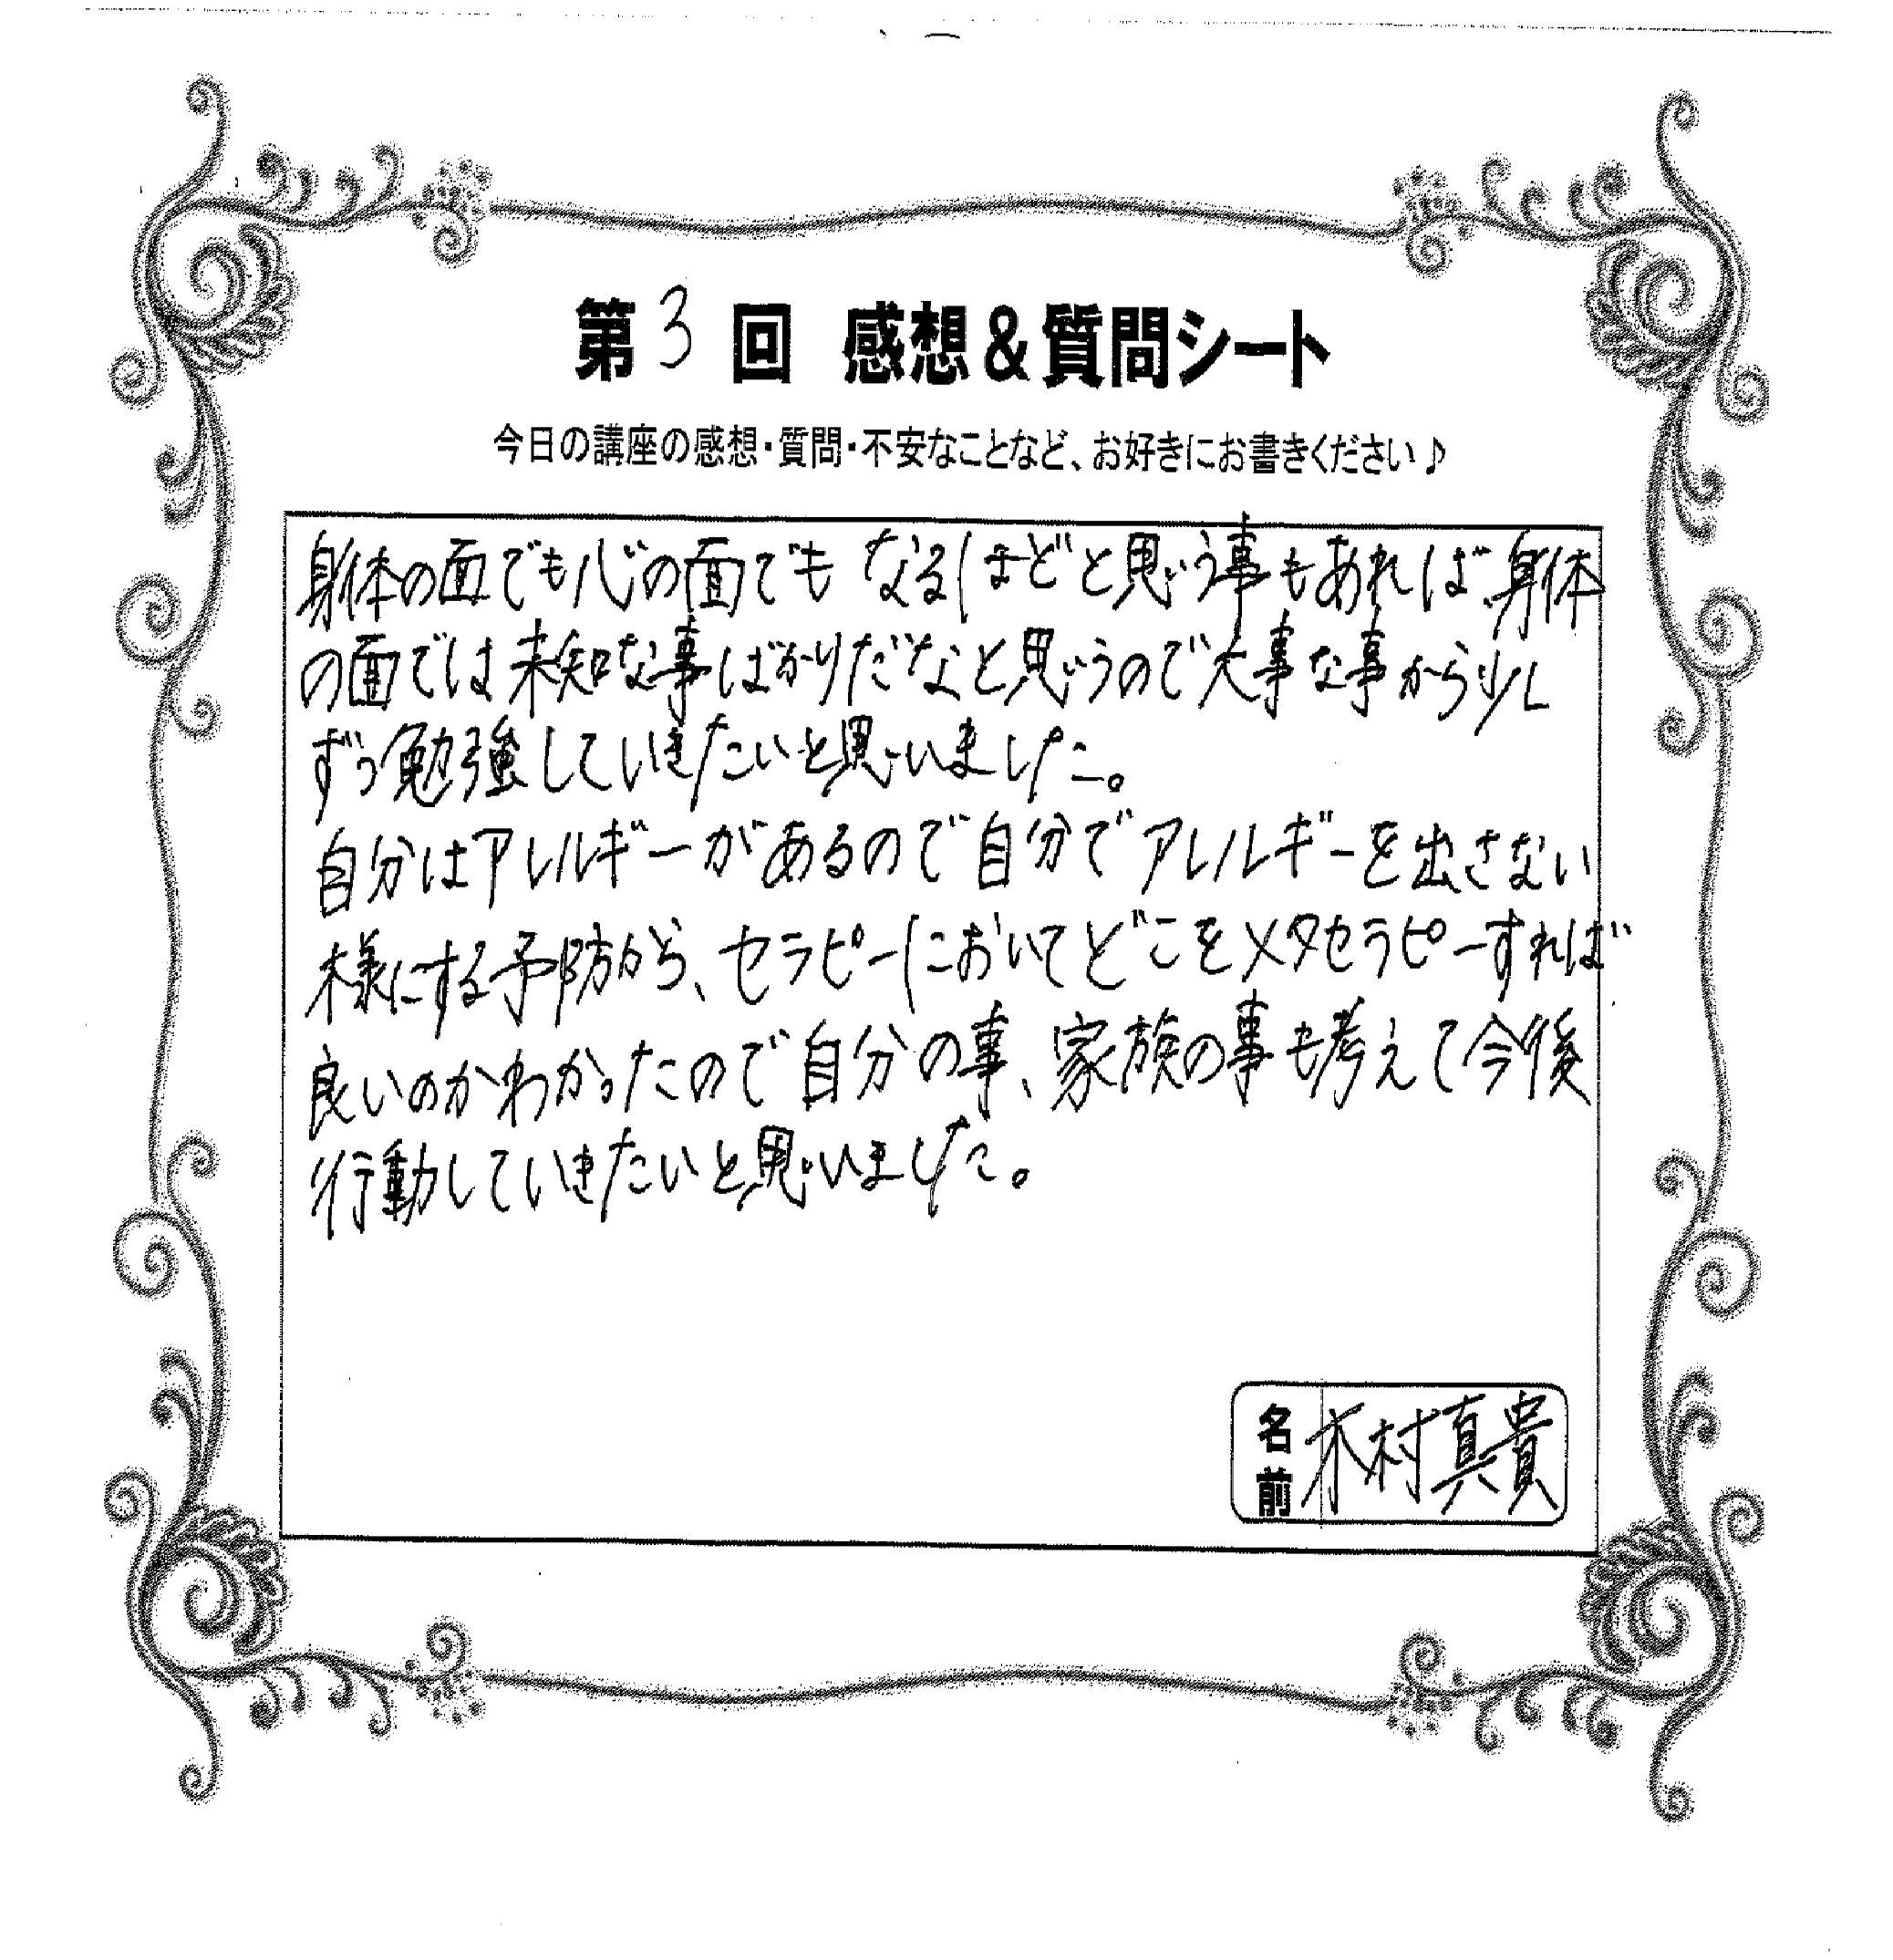 第3回 感想&質問シート
今日の講座の感想・質問・不安なことなど、お好きにお書きください♪
身体の面でも心の面でも なるほどと思う事もあれば、身体
の面では未知な事ばかりだなと思うので大事な事から少し
ずつ勉強していきたいと思いました。
自分はアレルギーがあるので自分でアレルギーを出さない
様にする予防から、セラピーにおいてどこをメタセラピーすれば
良いのかわかったので自分の事、家族の事も考えて今後
行動していきたいと思いました。
名前 木村真貴